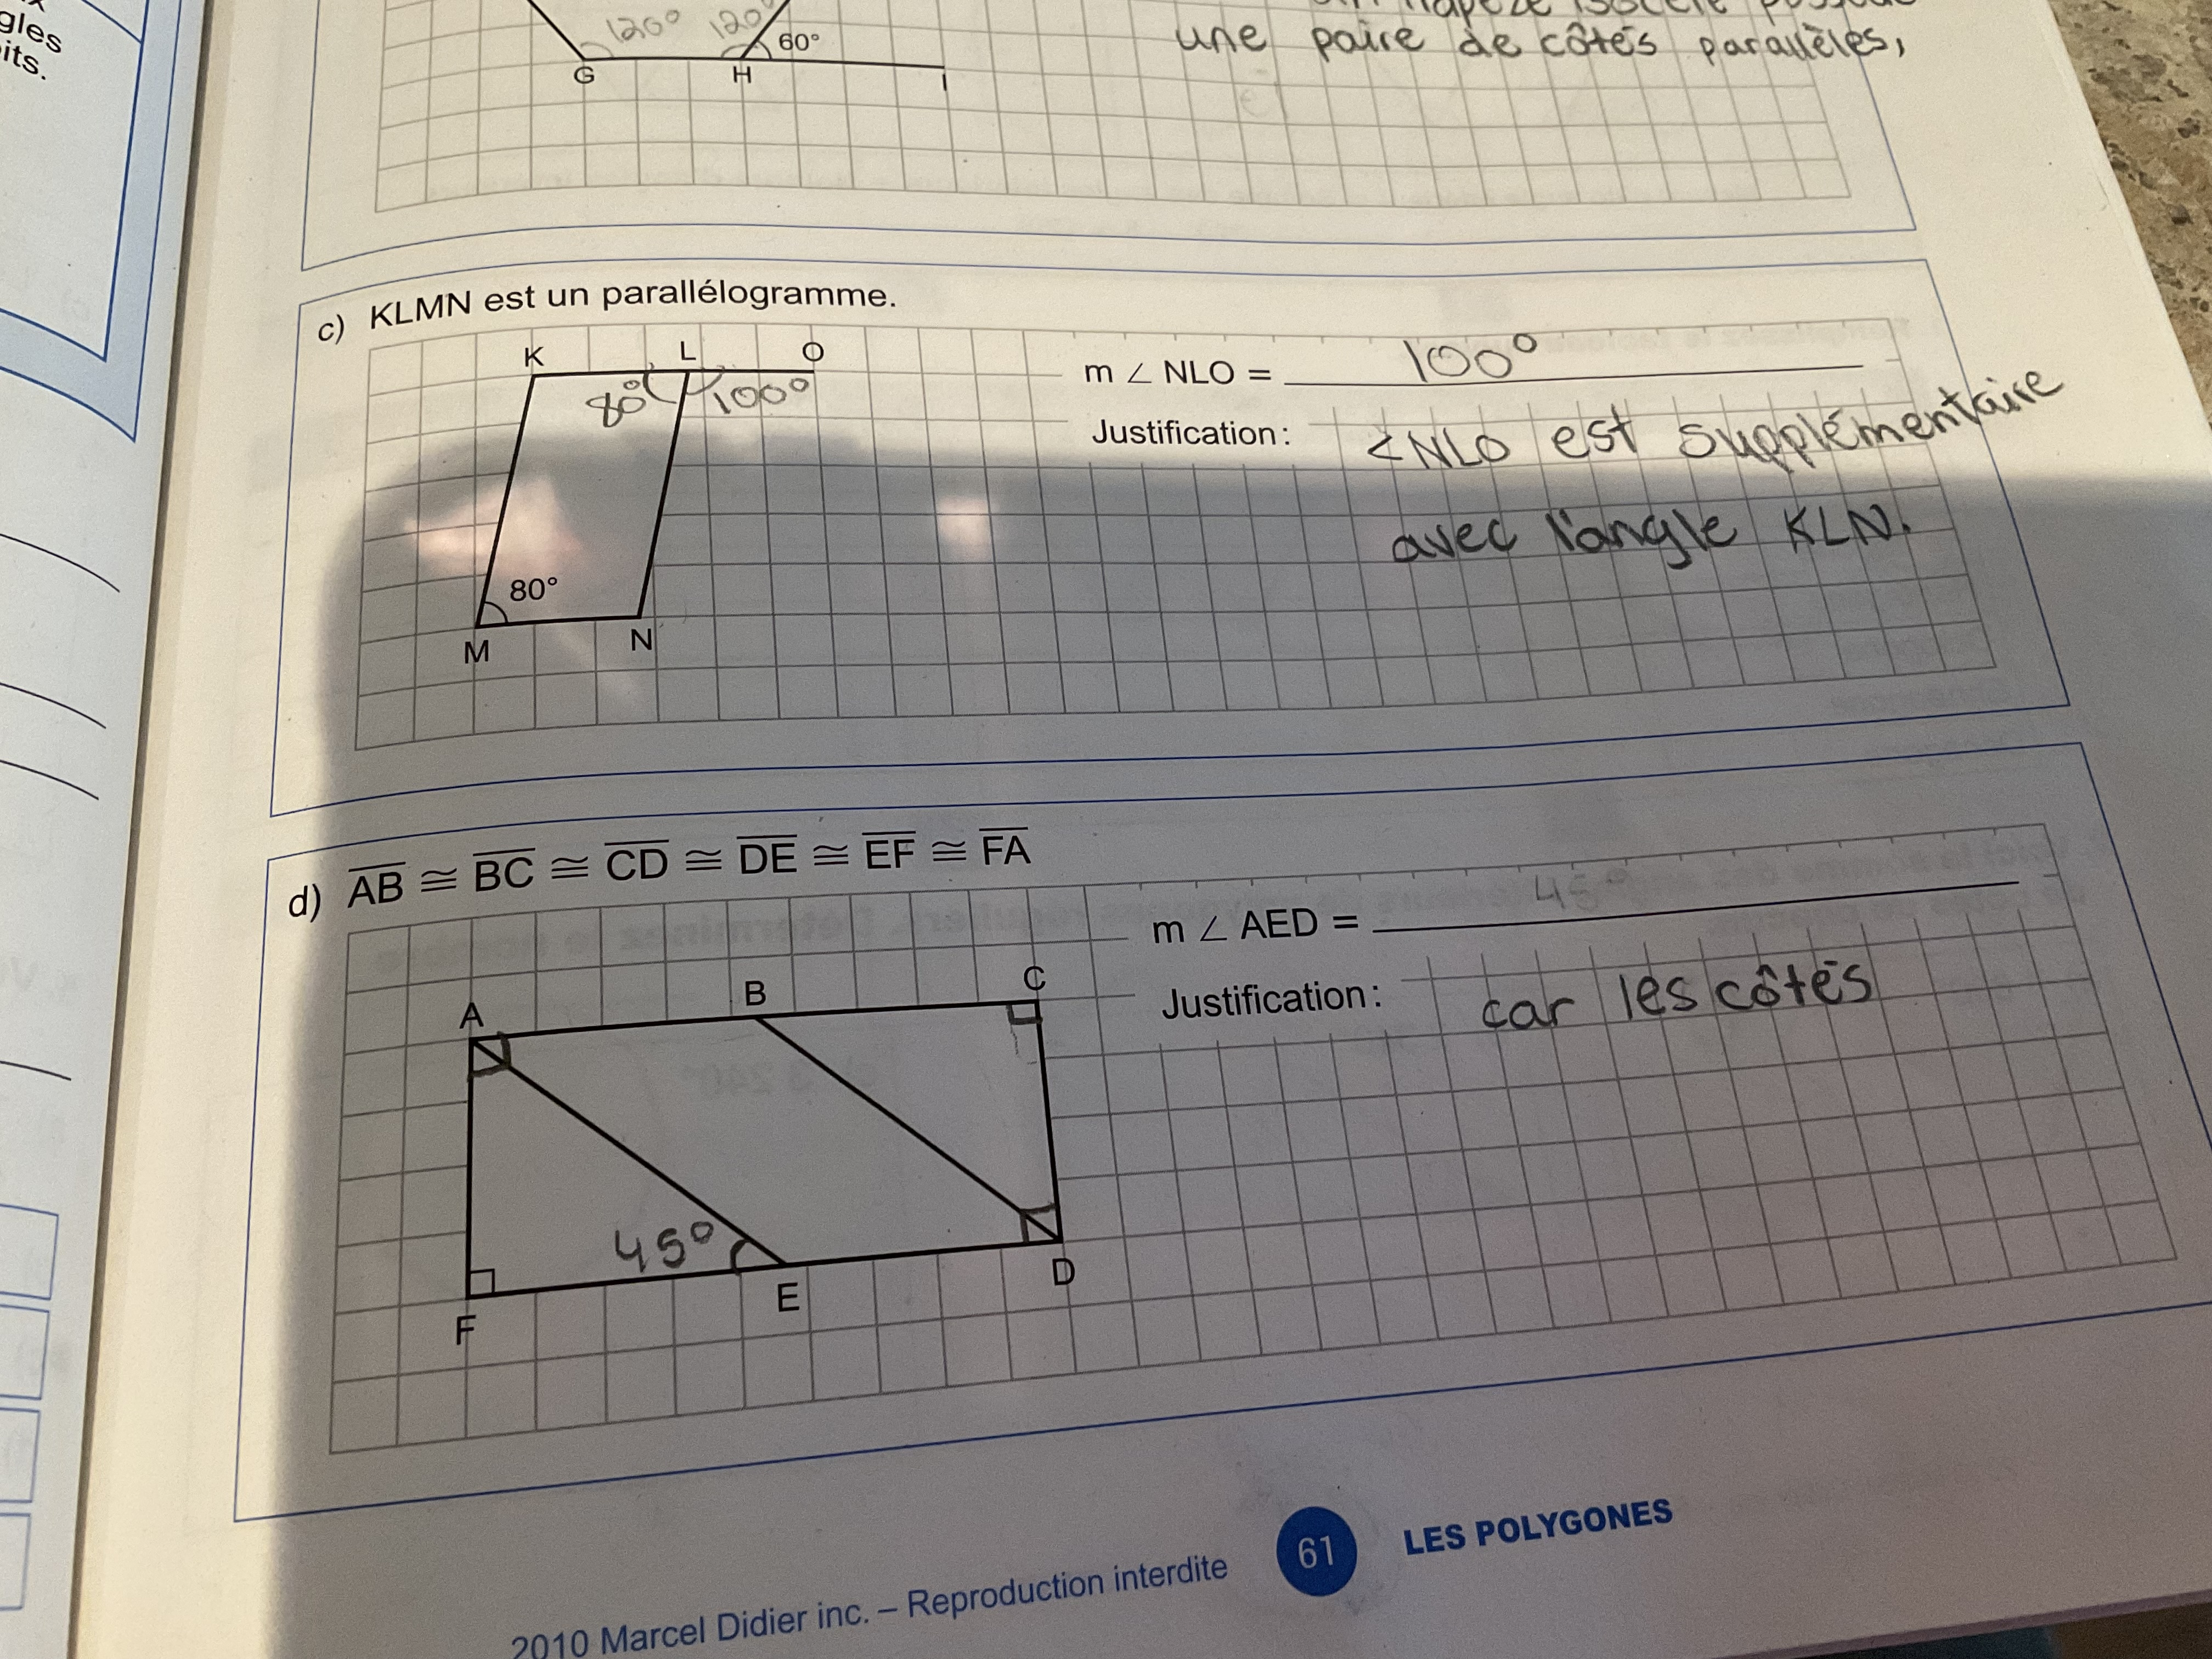 gles
its.
120° 120° 60°
G H I
une paire de côtés parallèles,
c) KLMN est un parallélogramme.
K L O
80° 100°
80°
M N
m ∠ NLO = 100°
Justification : <NLO est supplémentaire
avec l'angle KLN.
d) AB ≅ BC ≅ CD ≅ DE ≅ EF ≅ FA
A B C
45°
F E D
m ∠ AED = 45°
Justification : car les côtés
2010 Marcel Didier inc. – Reproduction interdite 61 LES POLYGONES